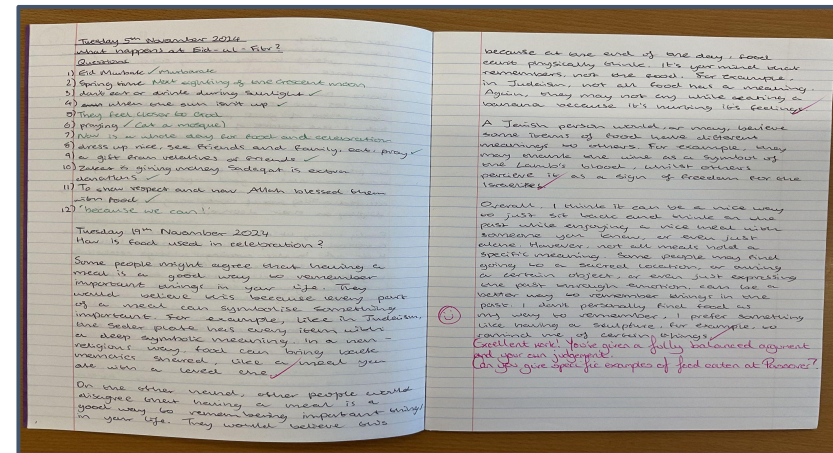 Tuesday 5th November 2024
What happens at Eid-ul-Fitr?
Questions
1) Eid Mubarak ✓ Murbarak
2) Spring time Not sighting of the crescent moon
3) don't eat or drink during sunlight ✓
4) when the sun isn't up ✓
5) They feel closer to God
6) praying ✓ (at a mosque)
7) Now is a whole day for food and celebration
8) dress up nice, see friends and family, eat, pray ✓
9) a gift from relatives or friends ✓
10) Zakat is giving money. Sadaqat is extra
donations ✓
11) To show respect and how Allah blessed them
with food ✓
12) 'because we can!'
Tuesday 19th November 2024
How is food used in celebration?
Some people might agree that having a
meal is a good way to remember
important things in your life. They
would believe this because every part
of a meal can symbolise something
important. For example, like in Judaism,
the seder plate has every item with
a deep symbolic meaning. In a non-
religious way, food can bring back
memories shared, like a meal you
ate with a loved one.
On the other hand, other people would
disagree that having a meal is a
good way to remembering important things
in your life. They would believe this
because at the end of the day, food
can't physically think. It's your mind that
remembers, not the food. For example,
in Judaism, not all food has a meaning.
Again, they may not cry while eating a
banana because it's hurting its feelings
A Jewish person would, or may, believe
some items of food have different
meanings to others. For example, they
may think the wine as a symbol of
the Lamb's blood, whilst others
percieve it as a sign of freedom for the
Israelites.
Overall, I think it can be a nice way
to just sit back and think on the
past while enjoying a nice meal with
someone you know, or even just
alone. However, not all meals hold a
specific meaning. Some people may find
going to a sacred location, or owning
a certain object, or even just expressing
the past through emotion, can be a
better way to remember things in the
past. I don't personally find food as
my way to remember, I prefer something
like having a sculpture, for example, to
remind me of certain things.
Excellent work! You've given a fully balanced argument
and your own judgement.
Can you give specific examples of food eaten at Passover?